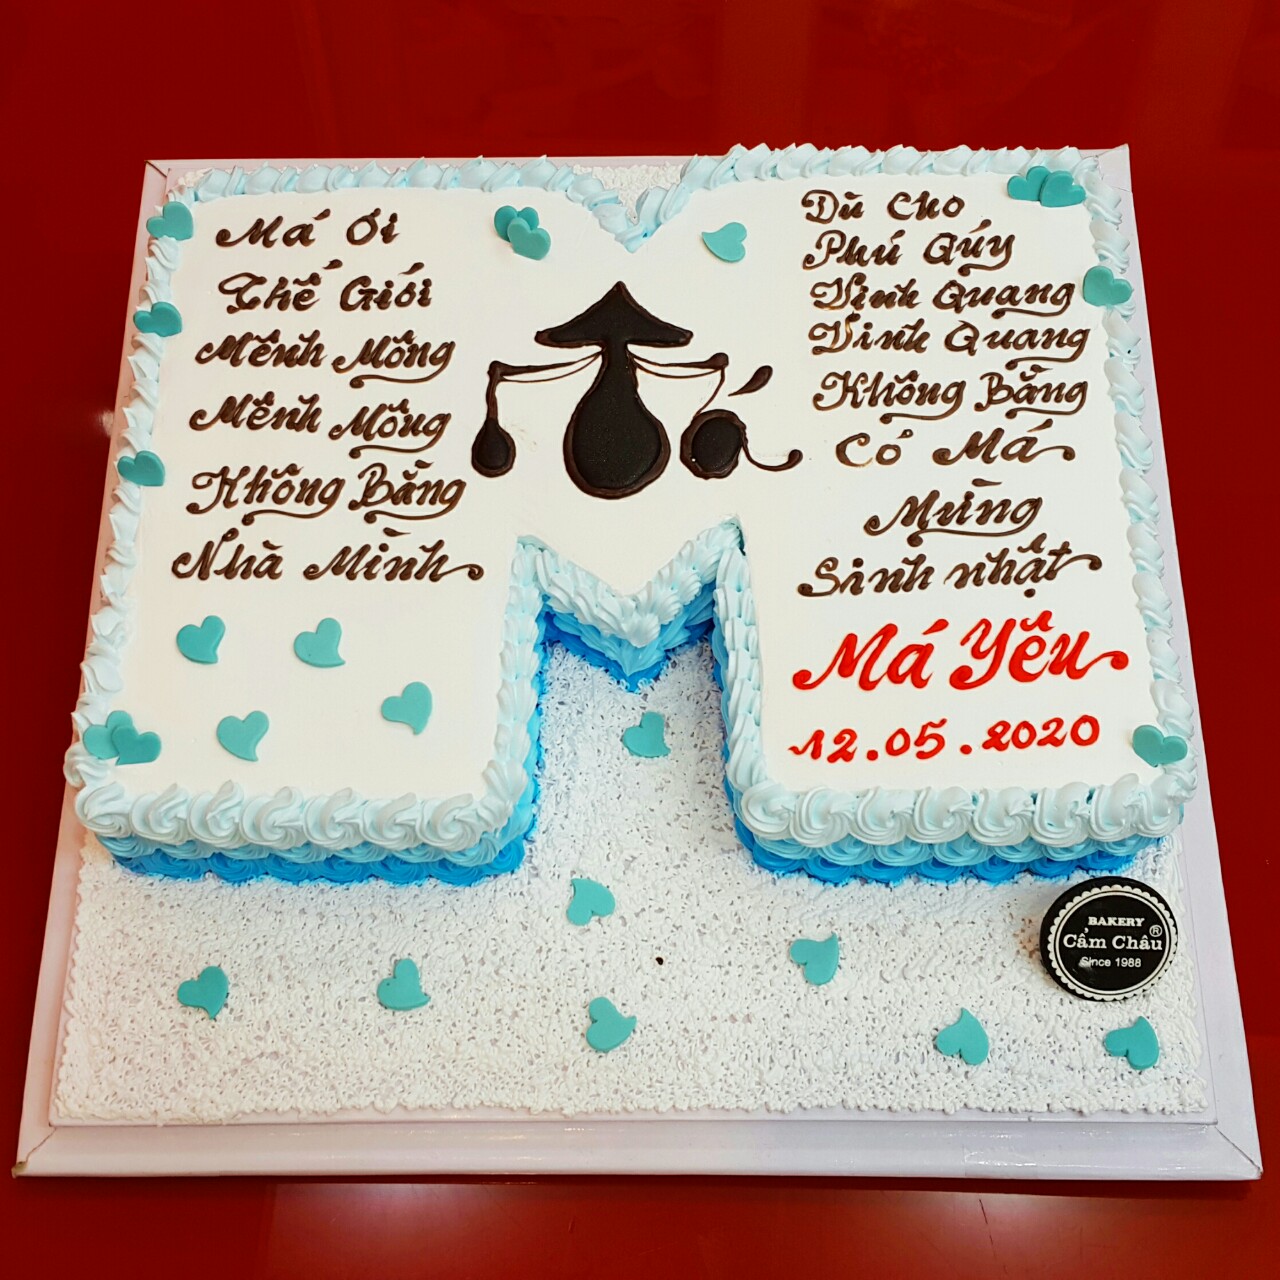 Má Ơi
Thế Giới
Mênh Mông
Mênh Mông
Không Bằng
Nhà Mình
Má
Dù Cho
Phú Qúy
Vinh Quang
Vinh Quang
Không Bằng
Có Má
Mừng
Sinh nhật
Má Yêu
12.05.2020
BAKERY
Cẩm Châu ®
Since 1988